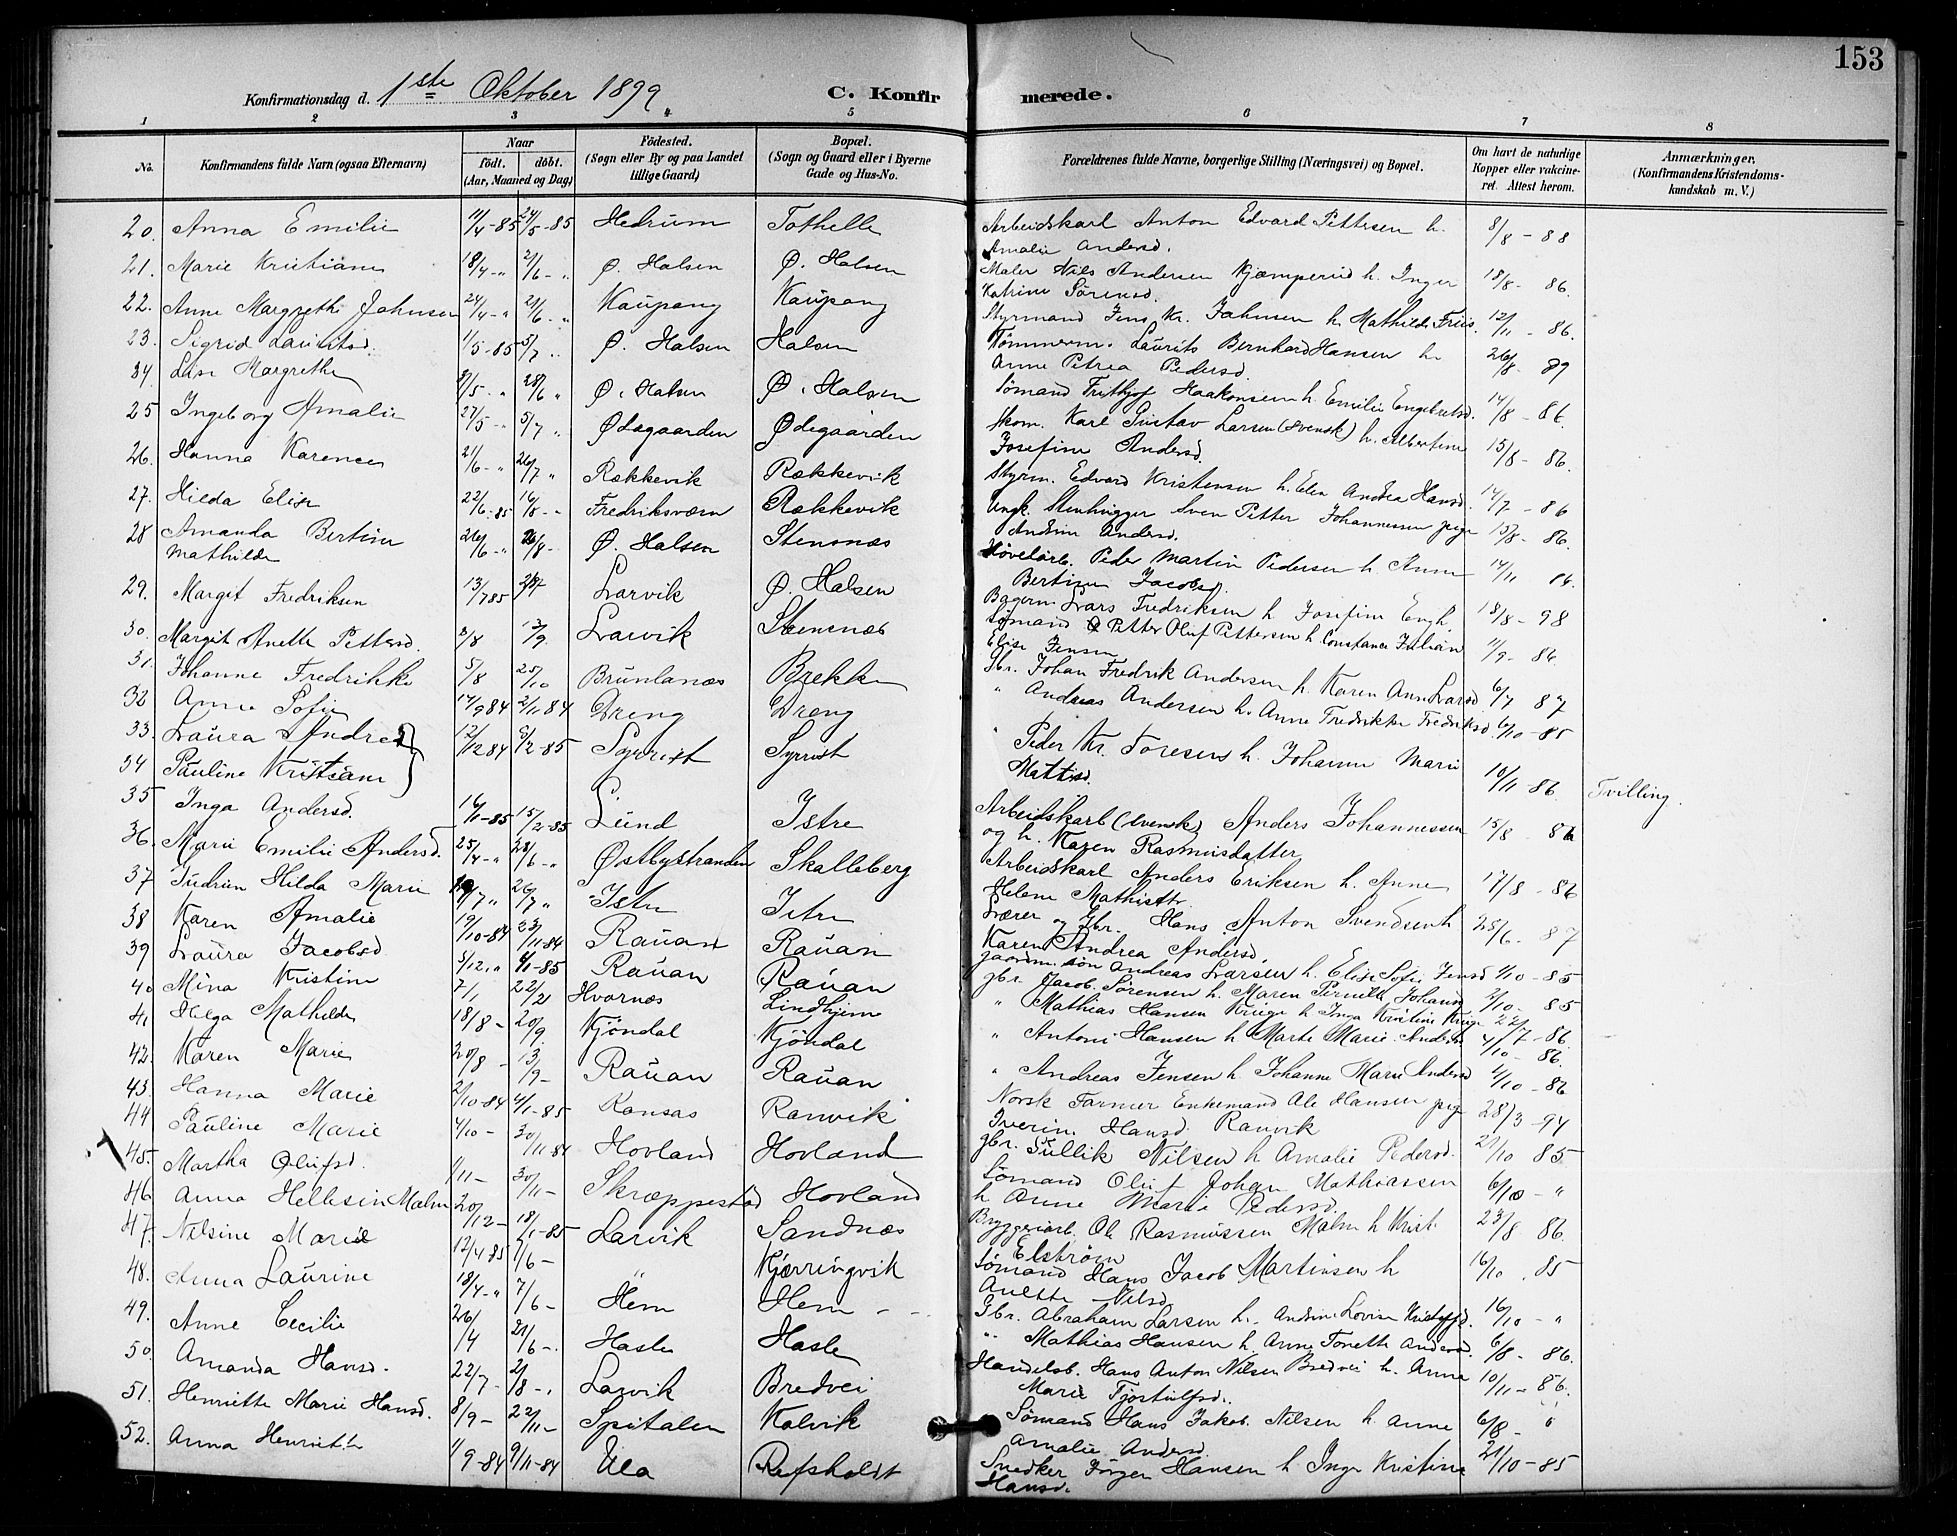 153
Konfirmationsdag d. 1ste Oktober 1899. C. Konfirmerede.
1 2 3 4 5 6 7 8
No. Konfirmandens fulde Navn (ogsaa Efternavn) Naar födt. döbt. (Aar, Maaned og Dag) Födested. (Sogn eller By og paa Landet tillige Gaard) Bopæl. (Sogn og Gaard eller i Byerne Gade og Hus-No. Forældrenes fulde Navne, borgerlige Stilling (Næringsvei) og Bopæl. Om havt de naturlige Kopper eller vakcineret. Attest herom. Anmærkninger, (Konfirmandens Kristendomskundskab m. V.)
20. Anna Emilie 11/4-85 24/5-85 Hedrum Tothelle Arbeidskarl Anton Edvard Pettersen h. 8/8-88
Amalie Andersd.
21. Marie Kristiane 18/4-" 21/6-" Ø. Halsen Ø. Halsen Maler Nils Andersen Kjæmperud h. Inger 18/8-86.
Katrine Sörensd.
22. Anne Margrethe Johnsen 24/4-" 21/6-" Kaupang Kaupang Styrmand Jens Kr. Johnsen h. Mathilde Friis. 12/11-86.
23. Sigrid Lauritsd. 1/5-85 5/7 " Ø. Halsen Halsen Tømmerm. Laurits Bernhard Hansen h. 26/8-89
Anne Petrea Pedersd.
24. Lise Margrethe 28/6 " Ø. Halsen Ø. Halsen Sømand Frithjof Haakonsen h. Emilie Engebretsd. 14/8-86.
25 Ingeborg Amalie 27/5-" 5/7 " Ødegaarden Ødegaarden Skom. Karl Gustav Larsen (svensk) h. Albertine 15/8-86.
Josefine Andersd.
26. Hanna Karence 21/6-" 26/7 " Rækkevik Rækkevik Styrm. Edvard Kristensen h. Elen Andrea Hansd. 14/7-86
27. Hilda Elise 22/6-85 16/8-" Fredriksværn Rækkevik Ungk. Stenhugger Sven Petter Johannessen pige 13/8-86.
Andrine Andersd.
28 Amanda Bertine 26/6-" /8- Ø. Halsen Stensnæs Høvelarb. Peder Martin Pedersen h. Anne 14/11 86.
Mathilde Bertine Jacobsd.
29. Margit Fredriksen 13/7 85 Larvik Ø. Halsen Bagerm. Lars Fredriksen h. Josefine Engh. 18/8-98
30. Margit Anette Pettersd. 2/8 13/9 Larvik Stensnæs Sømand Petter Oluf Pettersen h. Constance Juliane 11/9-86.
Elise Jensen
31. Johanne Fredrikke 5/8 25/10 Brunlanæs Brekke Gbr. Johan Fredrik Andersen h. Karen Anne Larsd. 6/7 87
32 Anne Sofie 14/9 84 2/11 84 Dreng Dreng " Andreas Andersen h. Anne Fredrikke Fredriksd. 6/10-85
33. Laura Andrea 12/12 84 8/2-85 Syrrist Syrrist " Peder Kr. Toresen h. Johanne Marie 16/11 86. Tvilling.
34 Pauline Kristiane Mattisd.
35 Inga Andersd. 16/1-85 15/2-85 Lund Istre Arbeidskarl (svensk) Anders Johannessen 15/8-86
og h. Karen Rasmusdatter
36. Marie Emilie Andersd. 25/4-" 28/6-" Østbystranden Skalleberg Arbeidskarl Anders Eriksen h. Anne 17/8-86
Helene Mathisdtr.
37 Gudrun Hilda Marie /7 " 26/7 " Istre Istre Lærer og Gbr. Hans Anton Svendsen h 25/6-87
Karen Andrea Andersd.
38 Karen Amalie 19/10-84 23/11-84 Rauan Rauan Gaardm. søn Andreas Larsen h. Elise Sofie Jensd. 4/10-85
39 Laura Jacobsd. 5/12 " 4/1-85 Rauan Rauan gbr. Jacob Sørensen h. Maren Pernille Johansd 2/10-85
40 Mina Kristine 7/1 22/2 Hvarnes Lindhjem " Mathias Hansen Kruge h Inga Kristine Kruge 22/7-86.
41 Helga Mathilde 18/8- 20/9. Kjöndal Kjöndal " Antoni Hansen h Marte Marie Andersd 4/10-86.
42. Karen Marie 20/8- 13/9- Rauan Rauan " Andreas Jensen h. Johanne Marie Andersd 4/10-86
43. Hanna Marie 2/10-84 4/1-85 Kansas Ranvik Norsk Farmer Enkemand Ole Hansen pig 28/3-94
Iverine Hansd. Ranvik
44 Pauline Marie 4/10- 30/11-84 Hovland Hovland gbr. Gullik Nilsen h Amalie Pedersd. 21/10 85
45. Martha Olufsd. 1/11- 30/11- Skræppestad Hovland Sømand Oluf Johan Mathiassen 6/10-"
h Anne Marie Pedersd.
46 Anna Hellesine Malm 20/12- 18/1-85 Larvik Sandnæs Bryggeriarb. Ole Rasmussen Malm h Krist. 23/8 86.
Elstrøm
47. Nilsine Marie 12/4 85 7/6- " Kjærringvik Sømand Hans Jacob Martinsen h 16/10 . 85
Anette Nilsd.
48. Anna Laurine 18/4-" 7/6- Hem Hem Gbr. Abraham Larsen h. Andrine Lovise Kristoffd. 16/10-"
49. Anne Cecilie 26/4 21/6- Hasle Hasle " Mathias Hansen h. Anne Torette Andersd. 6/8-86.
50. Amanda Hansd. 22/7- 2/8- Larvik Bredvei Handelsb. Hans Anton Nilsen Bredvei h. Anna 10/11-86.
Marie Tjostulfsd.
51. Henriette Marie Hansd. 8/9- 22/11- Spitalen Kalvik Sømand Hans Jakob Nilsen h. Anne 6/8- "
Amalie Andersd.
52. Anna Henriette 1/9-84 9/11-84 Ula Refsholdt Snedker Jörgen Hansen h Inge Kristine 21/10-85
Hansd.